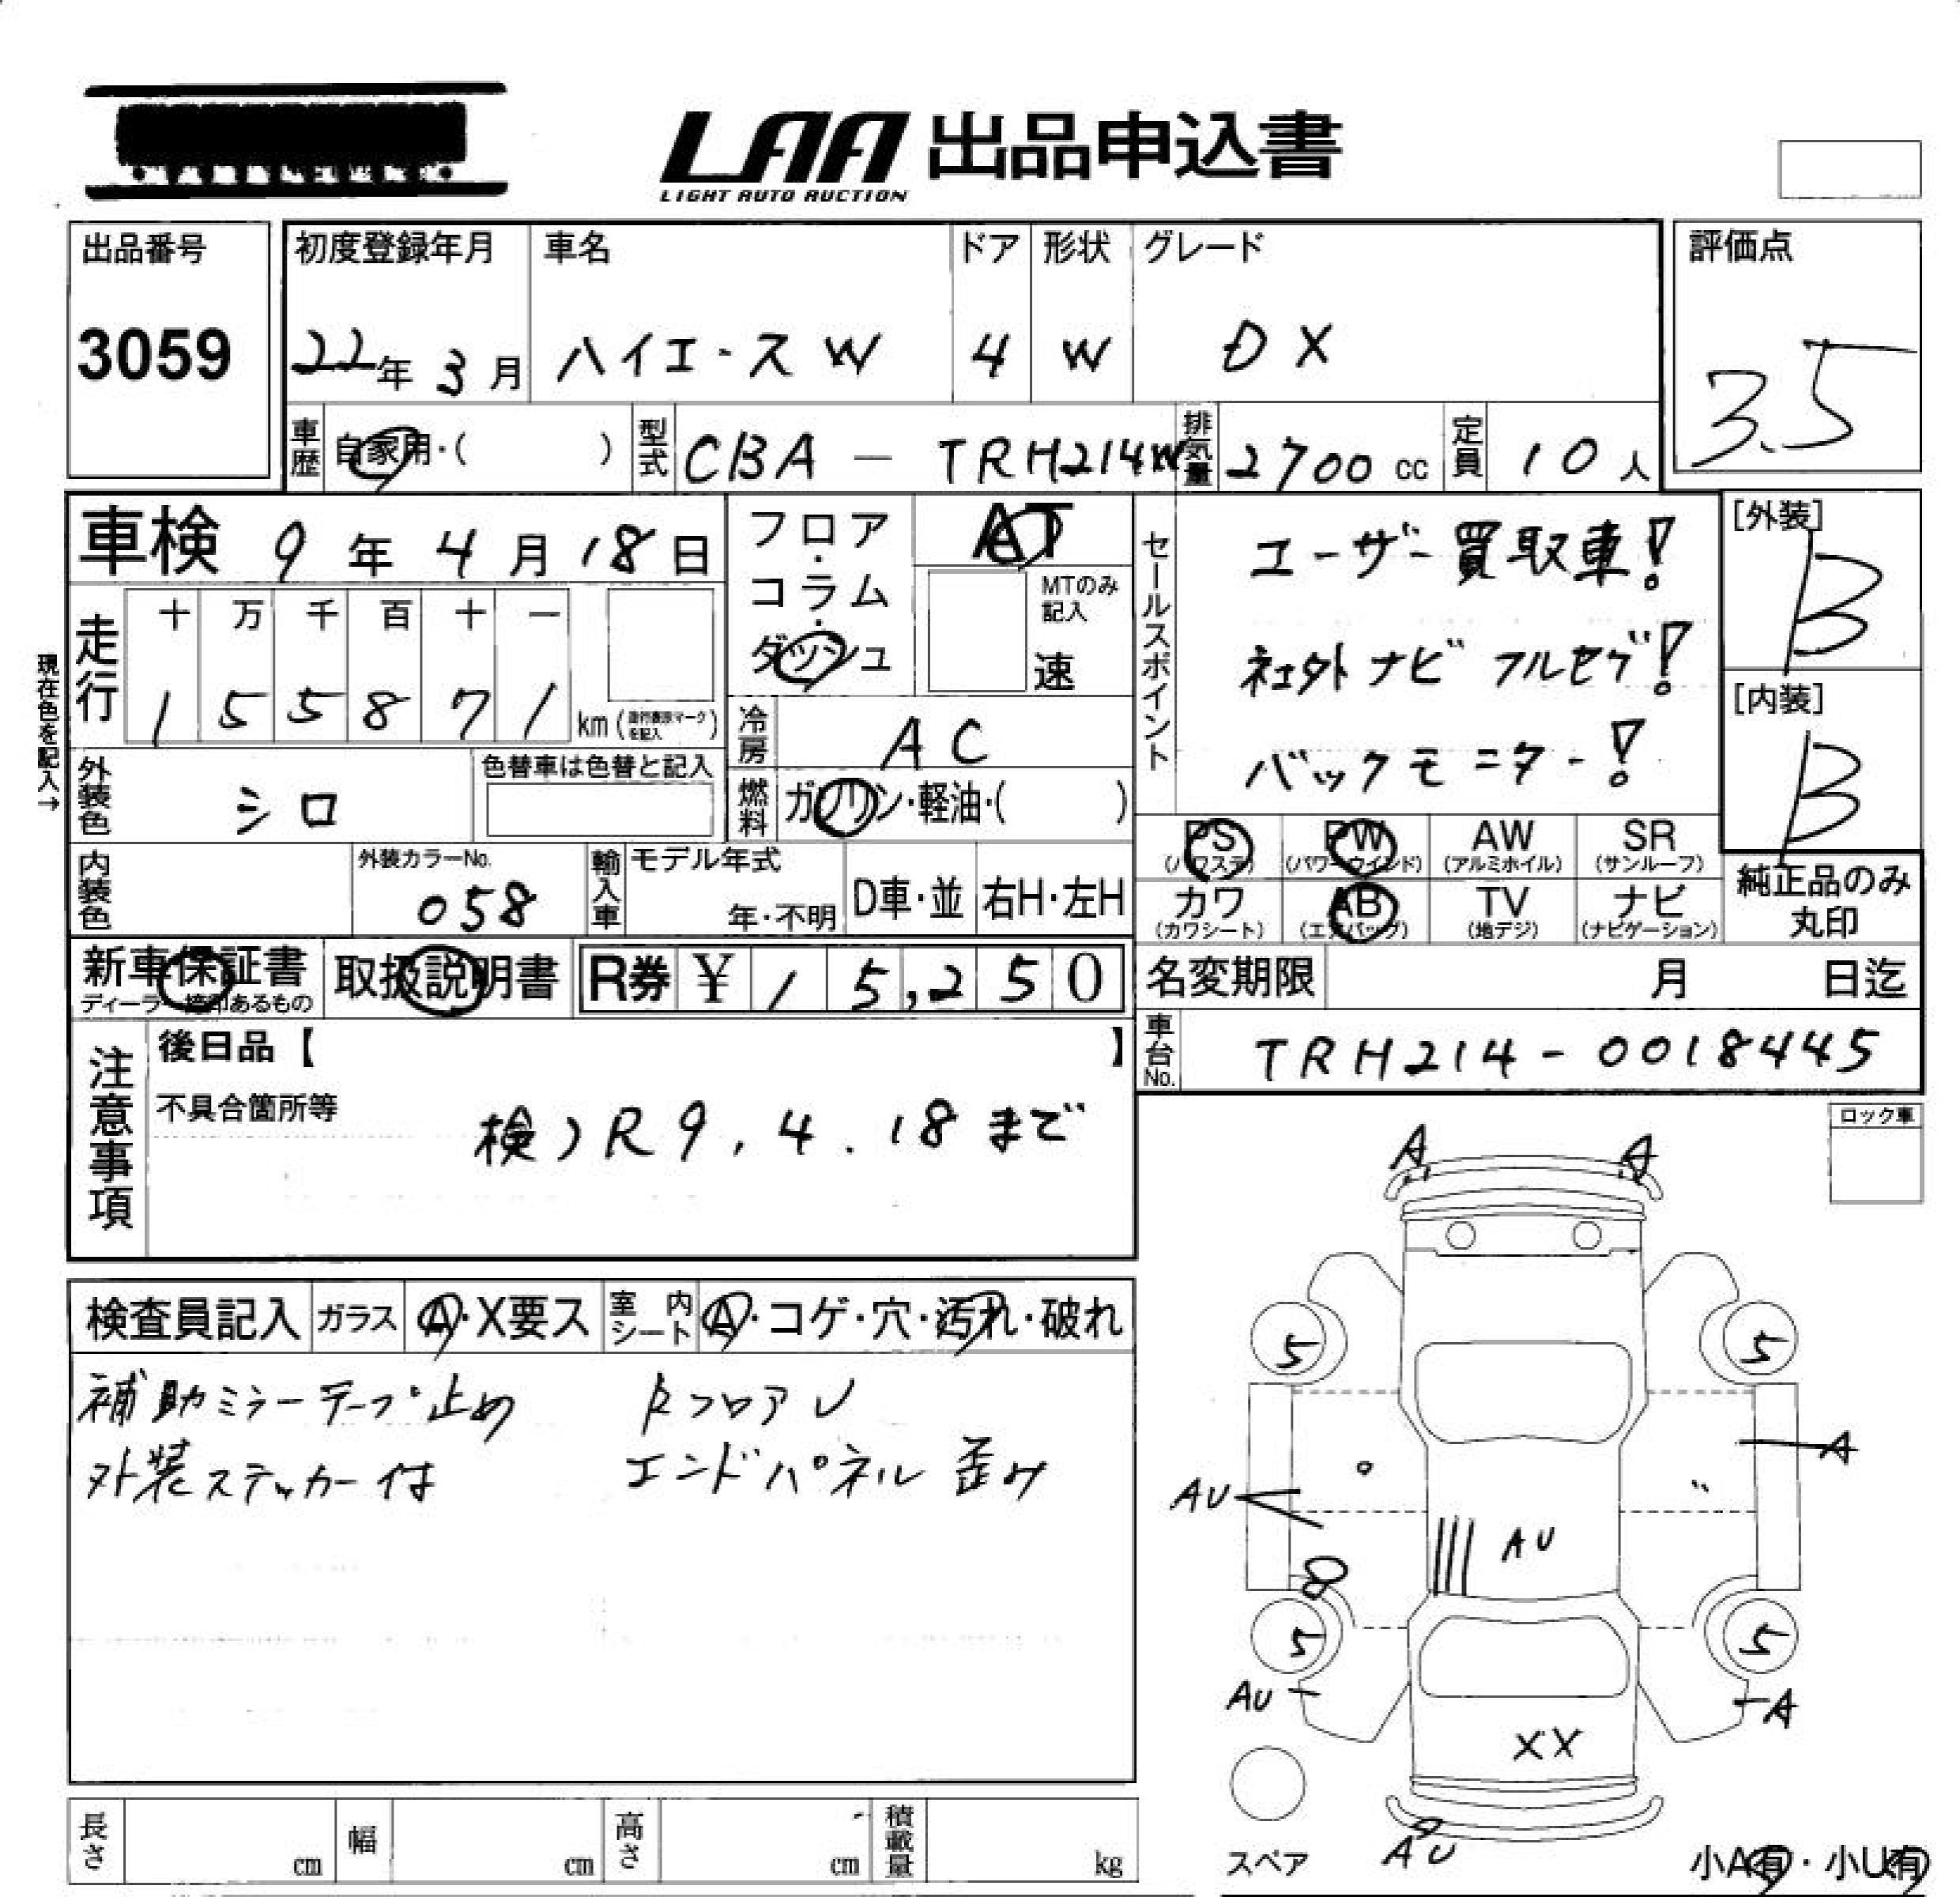 LAA 出品申込書
LIGHT AUTO AUCTION
出品番号
3059
初度登録年月
22年 3月
車名
ハイエースW
ドア
4
形状
W
グレード
DX
評価点
3.5
車歴
自家用・( )
型式
CBA - TRH214W
排気量
2700 cc
定員
10 人
車検 9年 4月 18日
フロア・コラム・ダッシュ
AT
MTのみ記入
速
セールスポイント
ユーザー買取車!
社外ナビ フルセグ!
バックモニター!
[外装]
B
[内装]
B
現在色を記入→
走行
十 万 千 百 十 一
1 5 5 8 7 1 km (走行表示マークを記入)
冷房
AC
外装色
シロ
色替車は色替と記入
燃料
ガソリン・軽油・( )
PS (パワステ)
PW (パワーウインド)
AW (アルミホイル)
SR (サンルーフ)
カワ (カワシート)
AB (エアバッグ)
TV (地デジ)
ナビ (ナビゲーション)
純正品のみ
丸印
内装色
外装カラーNo.
058
輸入車
モデル年式
年・不明
D車・並
右H・左H
新車保証書
取扱説明書
R券 ¥ 15,250
名変期限 月 日迄
車台No.
TRH214-0018445
注意事項
後日品【 】
不具合箇所等
検)R9.4.18まで
ロック車
検査員記入
ガラス
A・X要ス
室内シート
A・コゲ・穴・汚れ・破れ
補助ミラーテープ止め
RフロアU
外装ステッカー付
エンドパネル歪み
A A
5 5
A
AU
AU
8
5 5
AU
A
XX
AU
スペア
小A有・小U有
長さ cm
幅 cm
高さ cm
積載量 kg